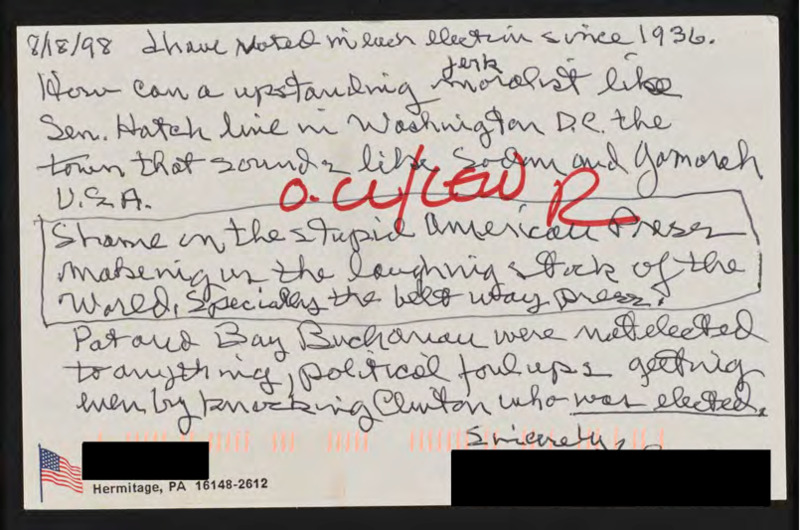 8/18/98 I have voted in each election since 1936.
How can a upstanding jerk moralist like
Sen. Hatch live in Washington D.C. the
town that sounds like Sodom and Gomorah
U.S.A.
Shame on the stupid American Press
makenig us the laughing stock of the
World, Specially the belt way press.
Pat and Bay Buchanan were not elected
to anything, political foul ups getting
even by knocking Clinton who was elected.
Sincerely,
Hermitage, PA 16148-2612